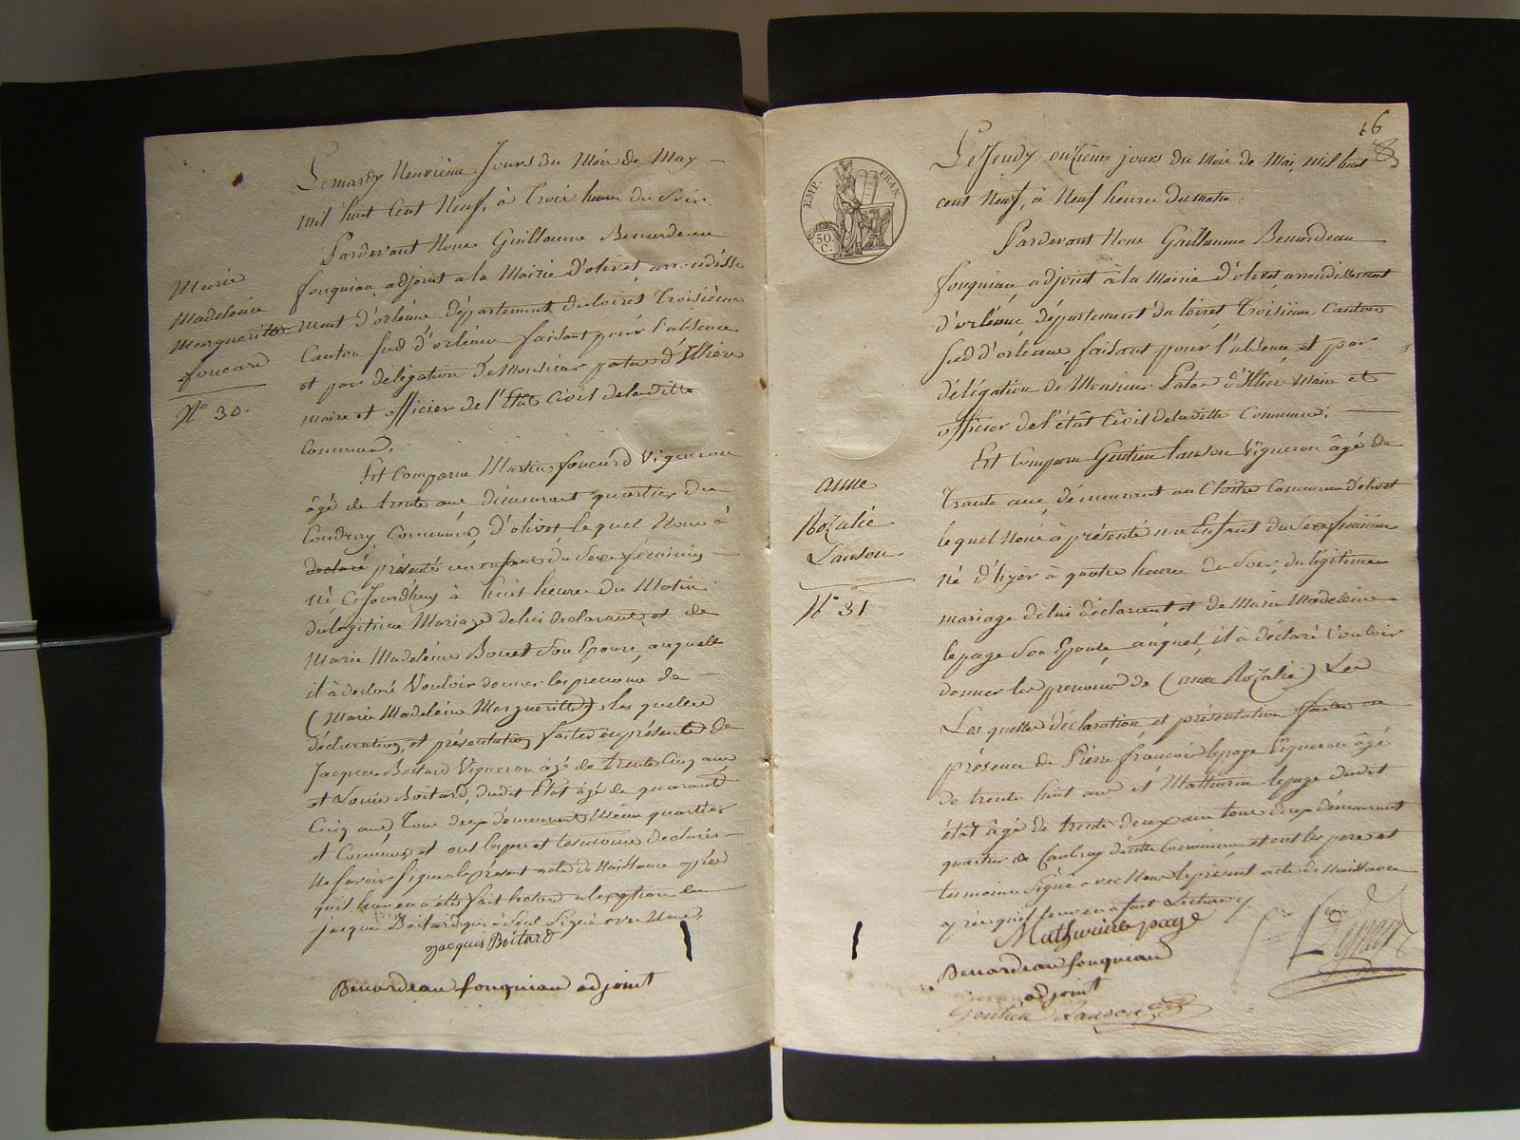 Le mardy Neuvieme Jours du Mois de May
mil huit Cent Neuf, à trois heures du Soir
Pardevant Nous Guillaume Benardeau
fouquiau adjoint a la Mairie d'olivet arrondisse
Marie
Madeleine
Margueritte
foucard
N° 30.
ment d'orléans département du loiret troisième
Canton sud d'orléans faisant pour l'absence
et par délégation de Monsieur pator d'Illiers
maire et officier de l'Etat Civil de la ditte
Commune,
Est Comparu Martin foucard Vigneron
âgé de trente ans, demeurant quartier du
Coudray Commune d'olivet lequel Nous à
declaré présenté un enfant du Sexe féminin
né Cejourdhuy à huit heures du Matin
du légitime Mariage de lui declarant et de
Marie Madeleine Boitard Son Epouse, auquelle
il à declaré Vouloir donner les prenoms de
(Marie Madeleine Margueritte) les quelles
déclaration, et présentation faites en présence de
Jacques Boitard Vigneron âgé de trente Cinq ans
et Louis Boitard, dudit Etat âgé de quarante
Cinq ans, tous deux demeurant Même quartier
et Commune et ont les pere et temoins declarés
Ne Savoir Signer le présent acte de Naissance après
quil leur en a étés fait lecture a lexeption de
Jacques Boitard qui à Seul Signé avec Nous,
Jacques Boitard
Benardeau fouquiau adjoint
16
EMP. FRAN.
50 C.
Le Jeudy onzieme jours du Mois de Mai, mil huit
cent Neuf, à Neuf heures du matin
Pardevant Nous Guillaume Benardeau
fouquiau, adjoint à la Mairie d'olivet arrondissement
d'orléans, département du loiret troisieme Canton
Sud d'orléans faisant pour l'absence et par
délégation de Monsieur Pator d'Illiers Maire et
officier de l'état Civil de la ditte Commune,
Anne
Rozalie
Lanson
N° 31
Est Comparu Gentien Lanson Vigneron âgé de
trente ans, demeurant au Commune d'olivet
lequel Nous à présenté un Enfant du Sexe feminin
né d'hyer à quatre heures de Soir, du légitime
mariage de lui déclarant et de Marie Madeleine
lepage Son Epouse, auquel, il à déclaré Vouloir
donner les prenoms de (anne Rozalie) Les
Les quelles déclaration et présentation faites en
présence de Pierre françois lepage Vigneron âgé
de trente huit ans et Mathurin lepage dudit
état âgé de trente deux ans tous deux demeurant
quartier de Caubray ditte Commune et ont les pere et
temoins Signé avec Nous le présent acte de Naissance
après quil leur en à fait Lecture
Mathurin le page
Benardeau fouquiau
adjoint
Gentien Lanson